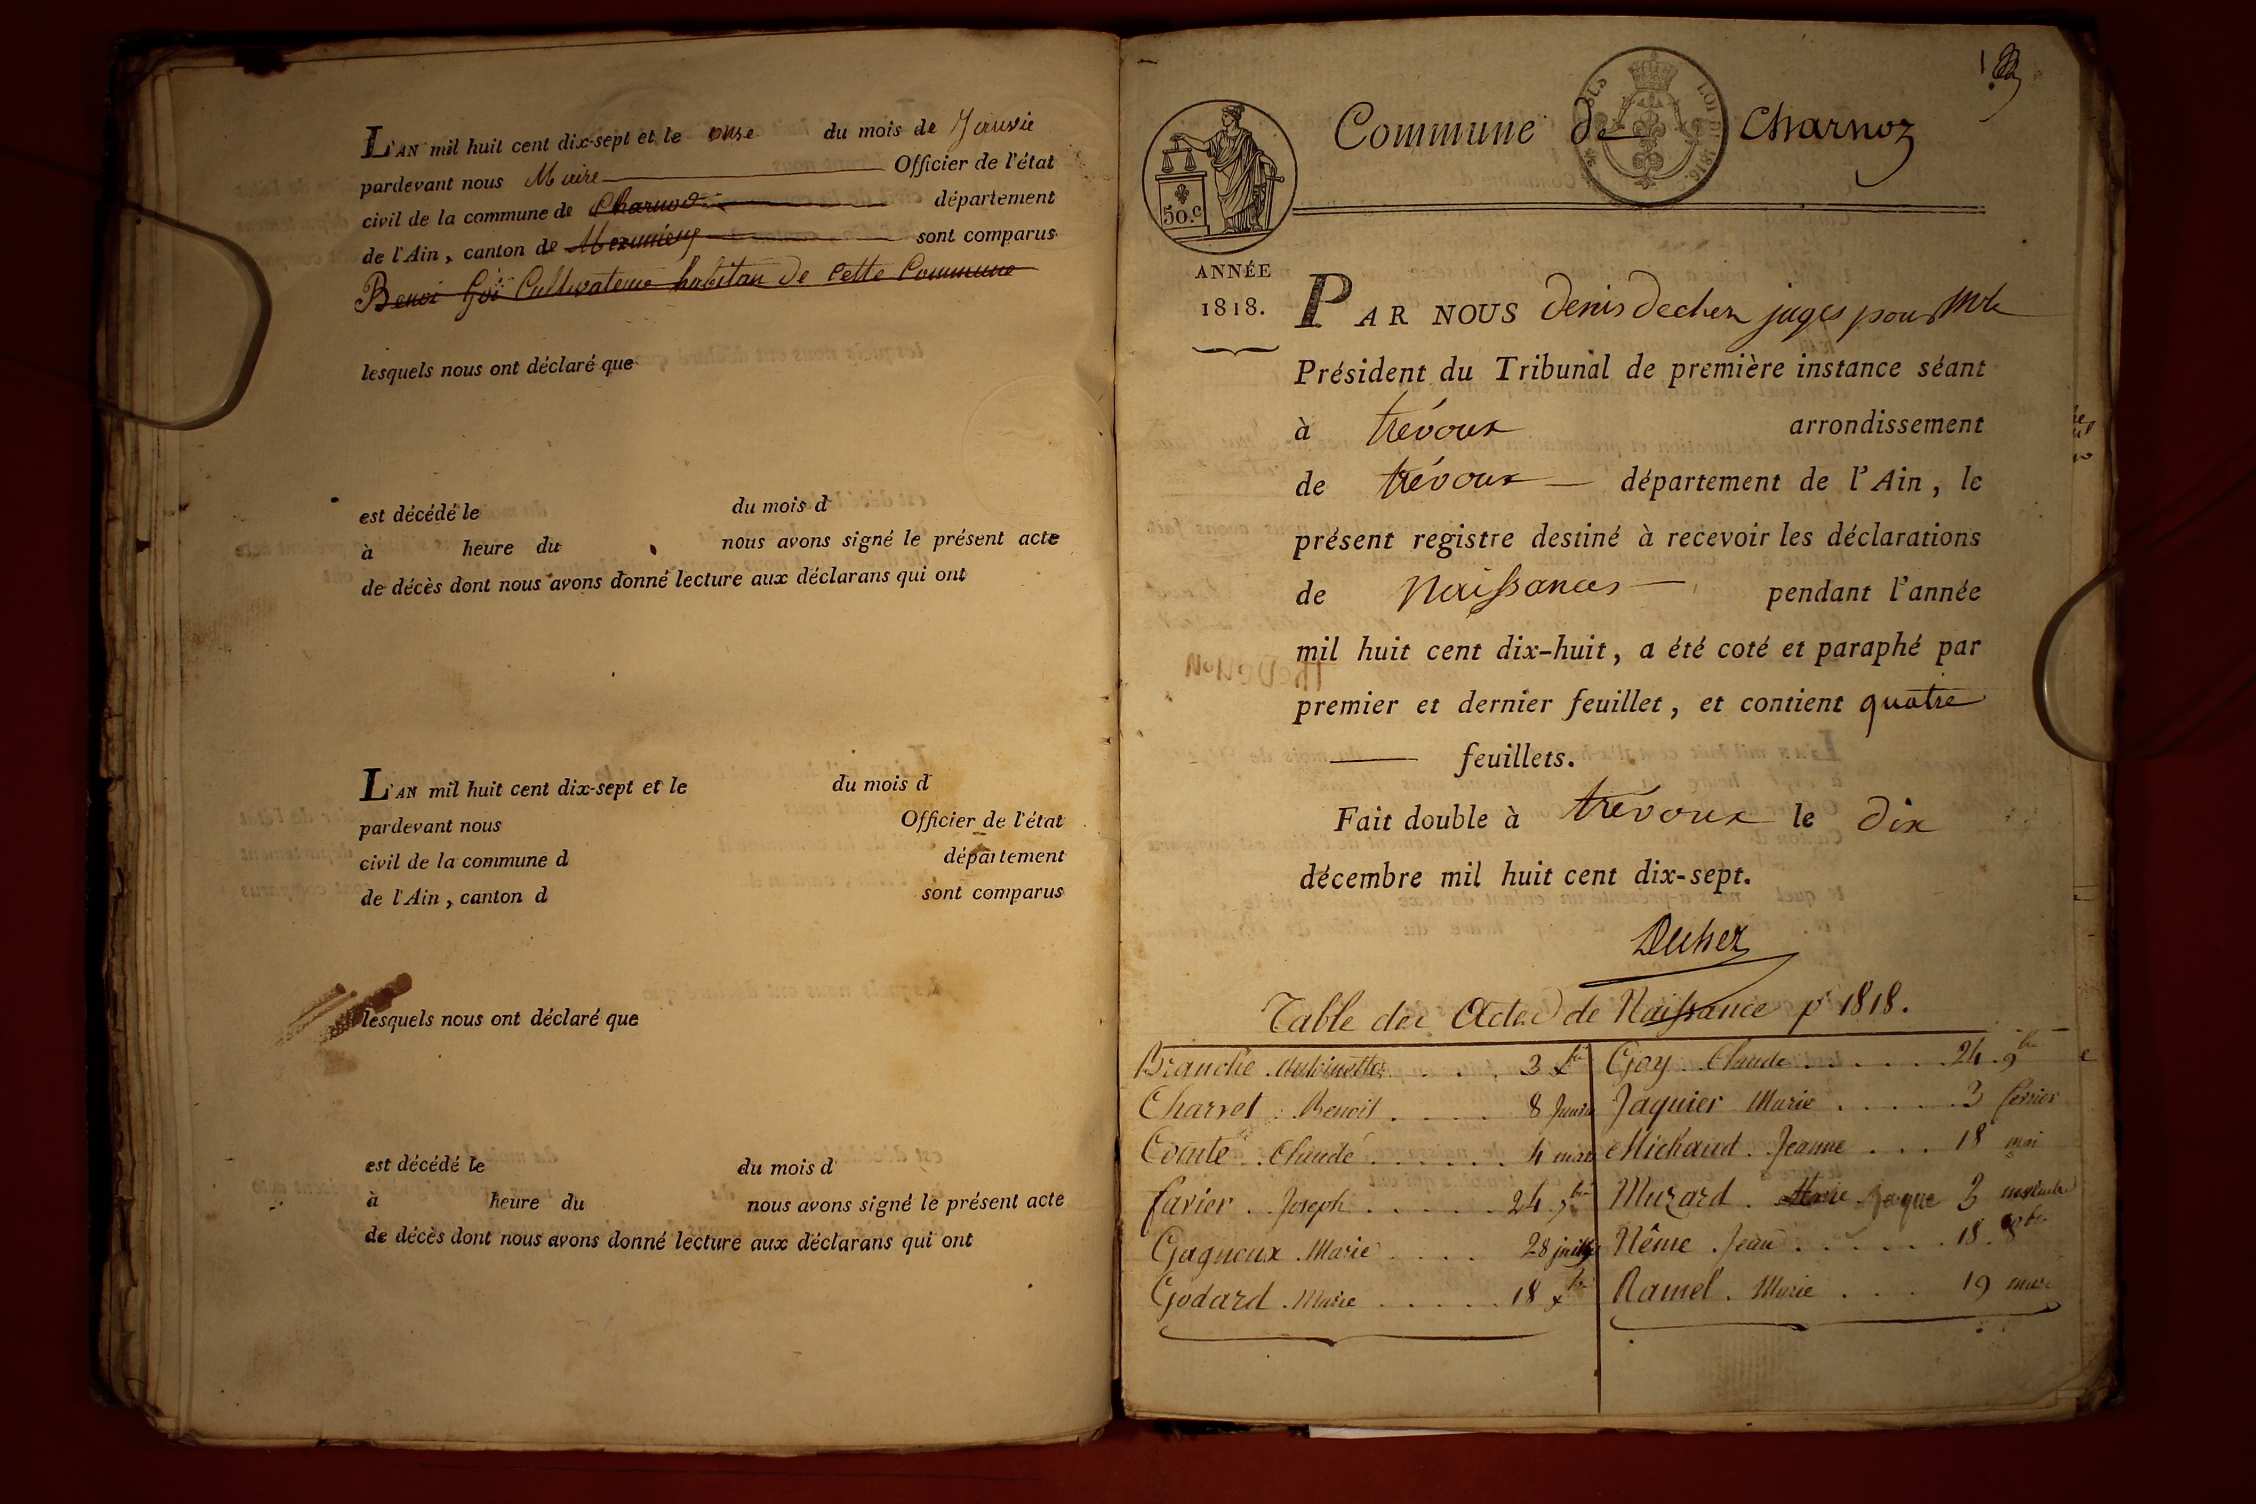 L'AN mil huit cent dix-sept et le onse du mois de Janvié
pardevant nous Maire Officier de l'état
civil de la commune de Charnoz département
de l'Ain, canton de Meximieux sont comparus
Benoi Goi Cultivateur habitan de cette Commune
lesquels nous ont déclaré que
est décédé le du mois d
à heure du nous avons signé le présent acte
de décès dont nous avons donné lecture aux déclarans qui ont
L'AN mil huit cent dix-sept et le du mois d
pardevant nous Officier de l'état
civil de la commune d département
de l'Ain, canton d sont comparus
lesquels nous ont déclaré que
est décédé le du mois d
à heure du nous avons signé le présent acte
de décès dont nous avons donné lecture aux déclarans qui ont
1
Commune de Charnoz
50.c
ANNÉE
1818.
PAR NOUS denis dechez juges pour Mr le
Président du Tribunal de première instance séant
à trévoux arrondissement
de trévoux département de l'Ain, le
présent registre destiné à recevoir les déclarations
de Naissances pendant l'année
mil huit cent dix-huit, a été coté et paraphé par
premier et dernier feuillet, et contient quatre
feuillets.
Fait double à trévoux le dix
décembre mil huit cent dix-sept.
Dechez
Table des Actes de Naissance pr 1818.
Branche Antoinette 3 xbre
Charvet Benoit 8 Janvier
Comte Claude 4 mai
favier Joseph 24 7bre
Gagneux Marie 28 juillet
Godard Marie 18 xbre
Goy Claude 24 9bre
Jaquier Marie 3 fevrier
Michaud Jeanne 18 mai
Muzard Jaque 3
Nême Jean 18 8bre
Ramel Marie 19 mars